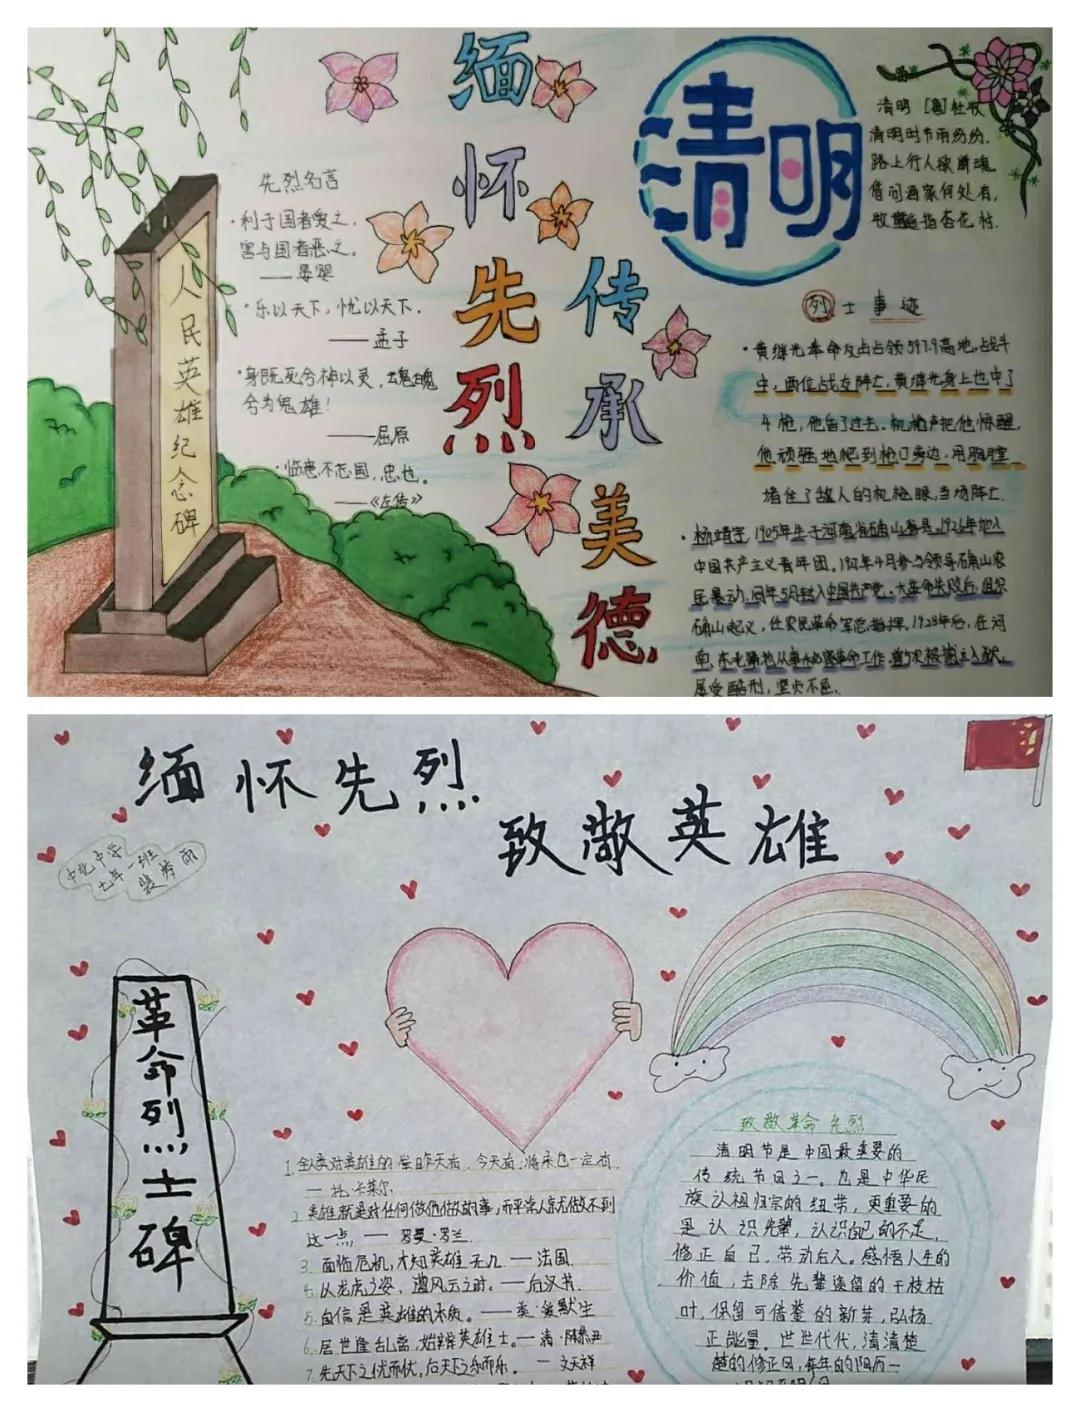 缅怀先烈
传承美德
清明
清明 [唐]杜牧
清明时节雨纷纷,
路上行人欲断魂
借问酒家何处有,
牧童遥指杏花村.
先烈名言
·利于国者爱之,
害与国者恶之。
——晏婴
·乐以天下,忧以天下.
——孟子
·身既死兮神以灵,
兮为鬼雄!
——屈原
·临患不忘国,忠也。
——《左传》
人民英雄纪念碑
烈士事迹
·黄继光奉命攻占占领597.9高地,战斗
中,两位战友阵亡,黄继光身上也中了
4枪,他昏了过去。机枪声把他惊醒,
他顽强地爬到枪口旁边,用胸膛
堵住了敌人的机枪眼,当场阵亡.
·杨靖宇,1905年生于河南省确山县,1926年加入
中国共产主义青年团。1927年4月参与领导确山农
民暴动,同年5月转入中国共产党。大革命失败后,组织
确山起义,任农民革命军总指挥。1928年后,在河
南、东北等地从事秘密革命工作,曾5次被捕入狱,
屡受酷刑,坚贞不屈、
缅怀先烈
致敬英雄
中北中学
七年一班
裴梦雨
革命烈士碑
1. 全人类对英雄的崇昨天有,今天有,将来也一定有.
— 托·卡莱尔.
2. 英雄就是对任何做他做的事,而平常人京尤做不到
这一点,— 罗曼·罗兰.
3. 面临危机,才知英雄无几.— 法国.
4. 从龙虎之姿,遭风云之时。— 后汉书.
5. 自信是英雄的本质。——美·爱默生
6. 居世逢乱离,始辨英雄士。—清·陈恭尹
7. 先天下之忧而忧,后天下之乐而乐.— 文天祥
致敬革命先烈
清明节是中国最重要的
传统节日之一。也是中华民
族认祖归宗的纽带,更重要的
是认识先辈,认识自己的不足,
修正自己,带动后人。感悟人生的
价值,去除先辈遗留的干枝枯
叶,保留可借鉴的新芽,弘扬
正能量。世世代代,清清楚
楚的修正风,每年的阳历一